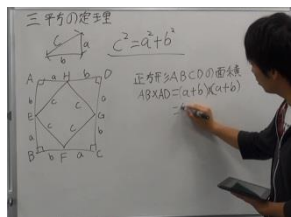 三平方の定理
c
a
b
c²=a²+b²
A a H b D
b c c a
E G
a c c b
B b F a C
正方形ABCDの面積
AB×AD=(a+b)×(a+b)
=